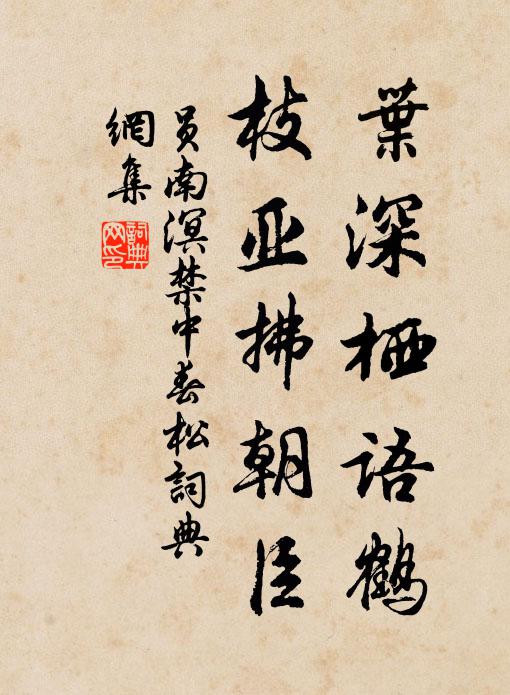 葉深栖语鶴
枝亚拂朝臣
员南溟禁中春松詞典
網集
詞典网印